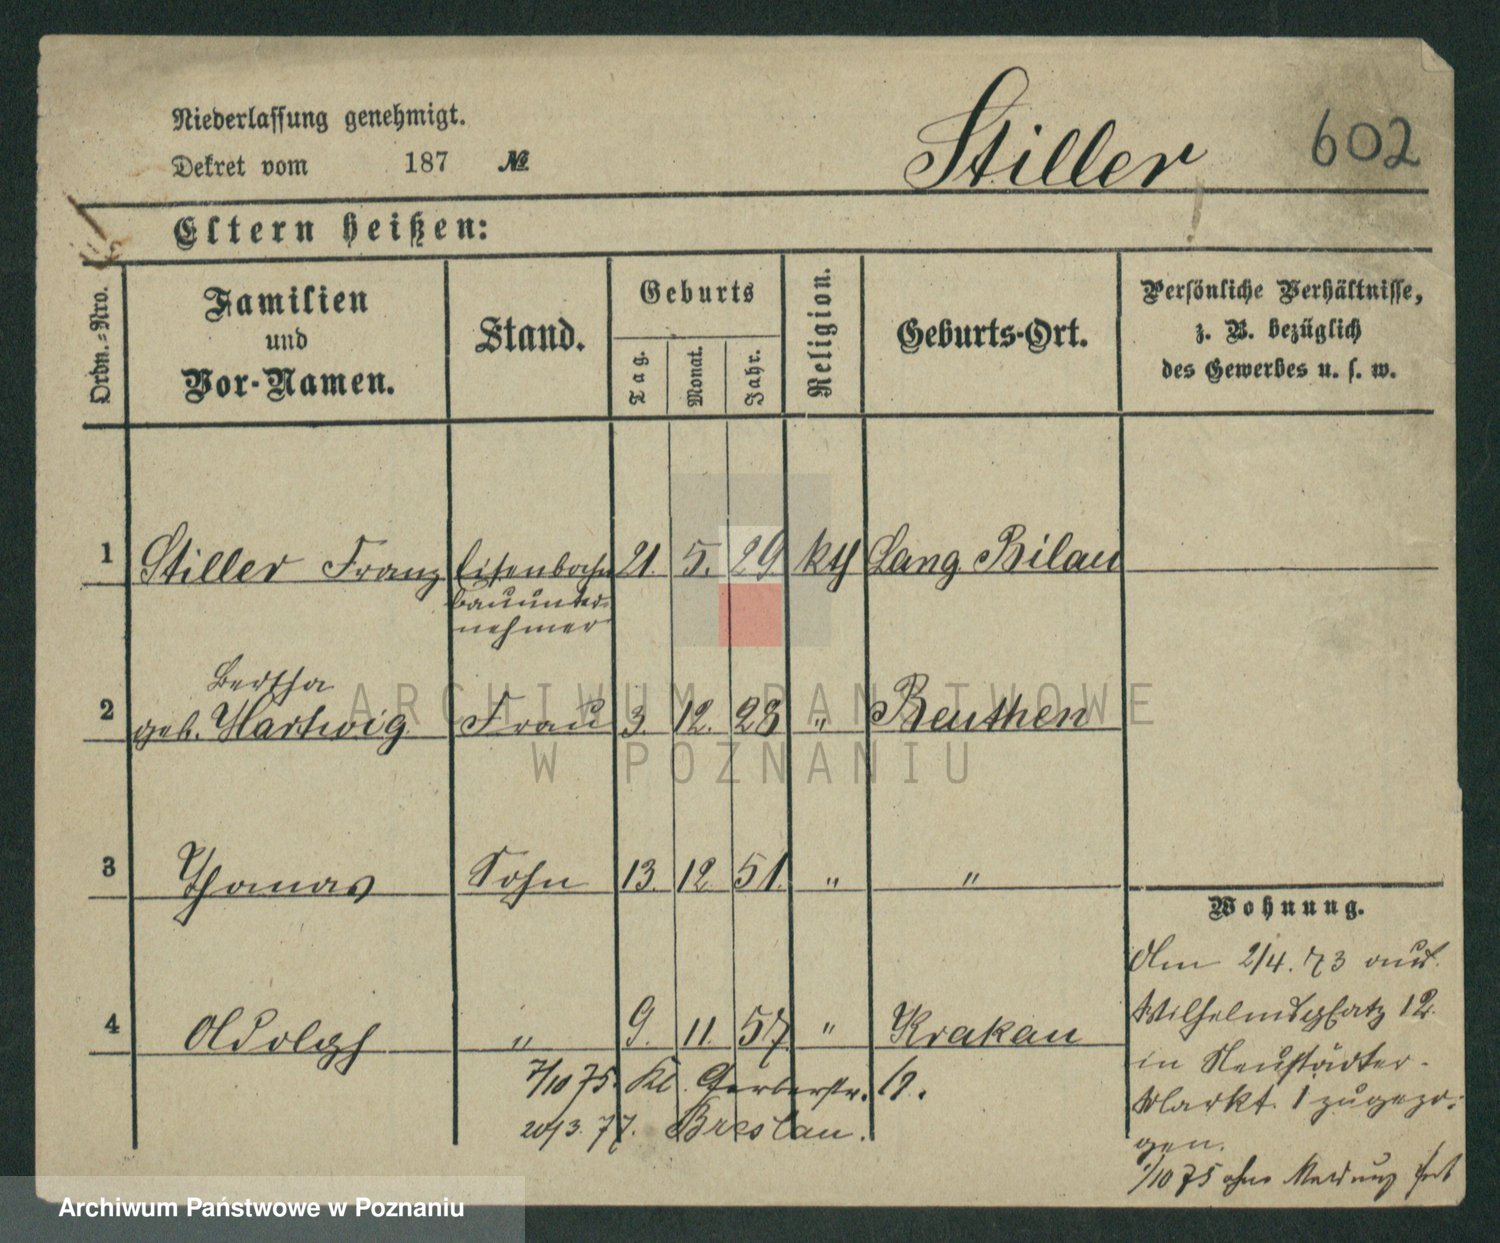 Niederlassung genehmigt.
Stiller 602
Dekret vom 187 №
Eltern heißen:
Ordn.-Nro.
Familien
und
Vor-Namen.
Stand.
Geburts
Tag.
Monat.
Jahr.
Religion.
Geburts-Ort.
Persönliche Verhältnisse,
z. B. bezüglich
des Gewerbes u. s. w.
1 Stiller Franz Eisenbahn 21. 5. 29 kth Lang Bilau
bauunter-
nehmer
Bertha
2 geb. Hartwig Frau 3. 12. 28 " Beuthen
ARCHIWUM PAŃSTWOWE
W POZNANIU
3 Thomas Sohn 13. 12. 51. " "
4 Adolph " 9. 11. 57. " Krakau
7/10 75. Kl. Gerberstr. 12.
20/3. 77. Breslau.
Wohnung.
Am 2/4. 73 aus
Wilhelmsplatz 12.
in Neustädter-
Markt 1 zugezo-
gen.
1/10 75 ohne Meldung fort
Archiwum Państwowe w Poznaniu